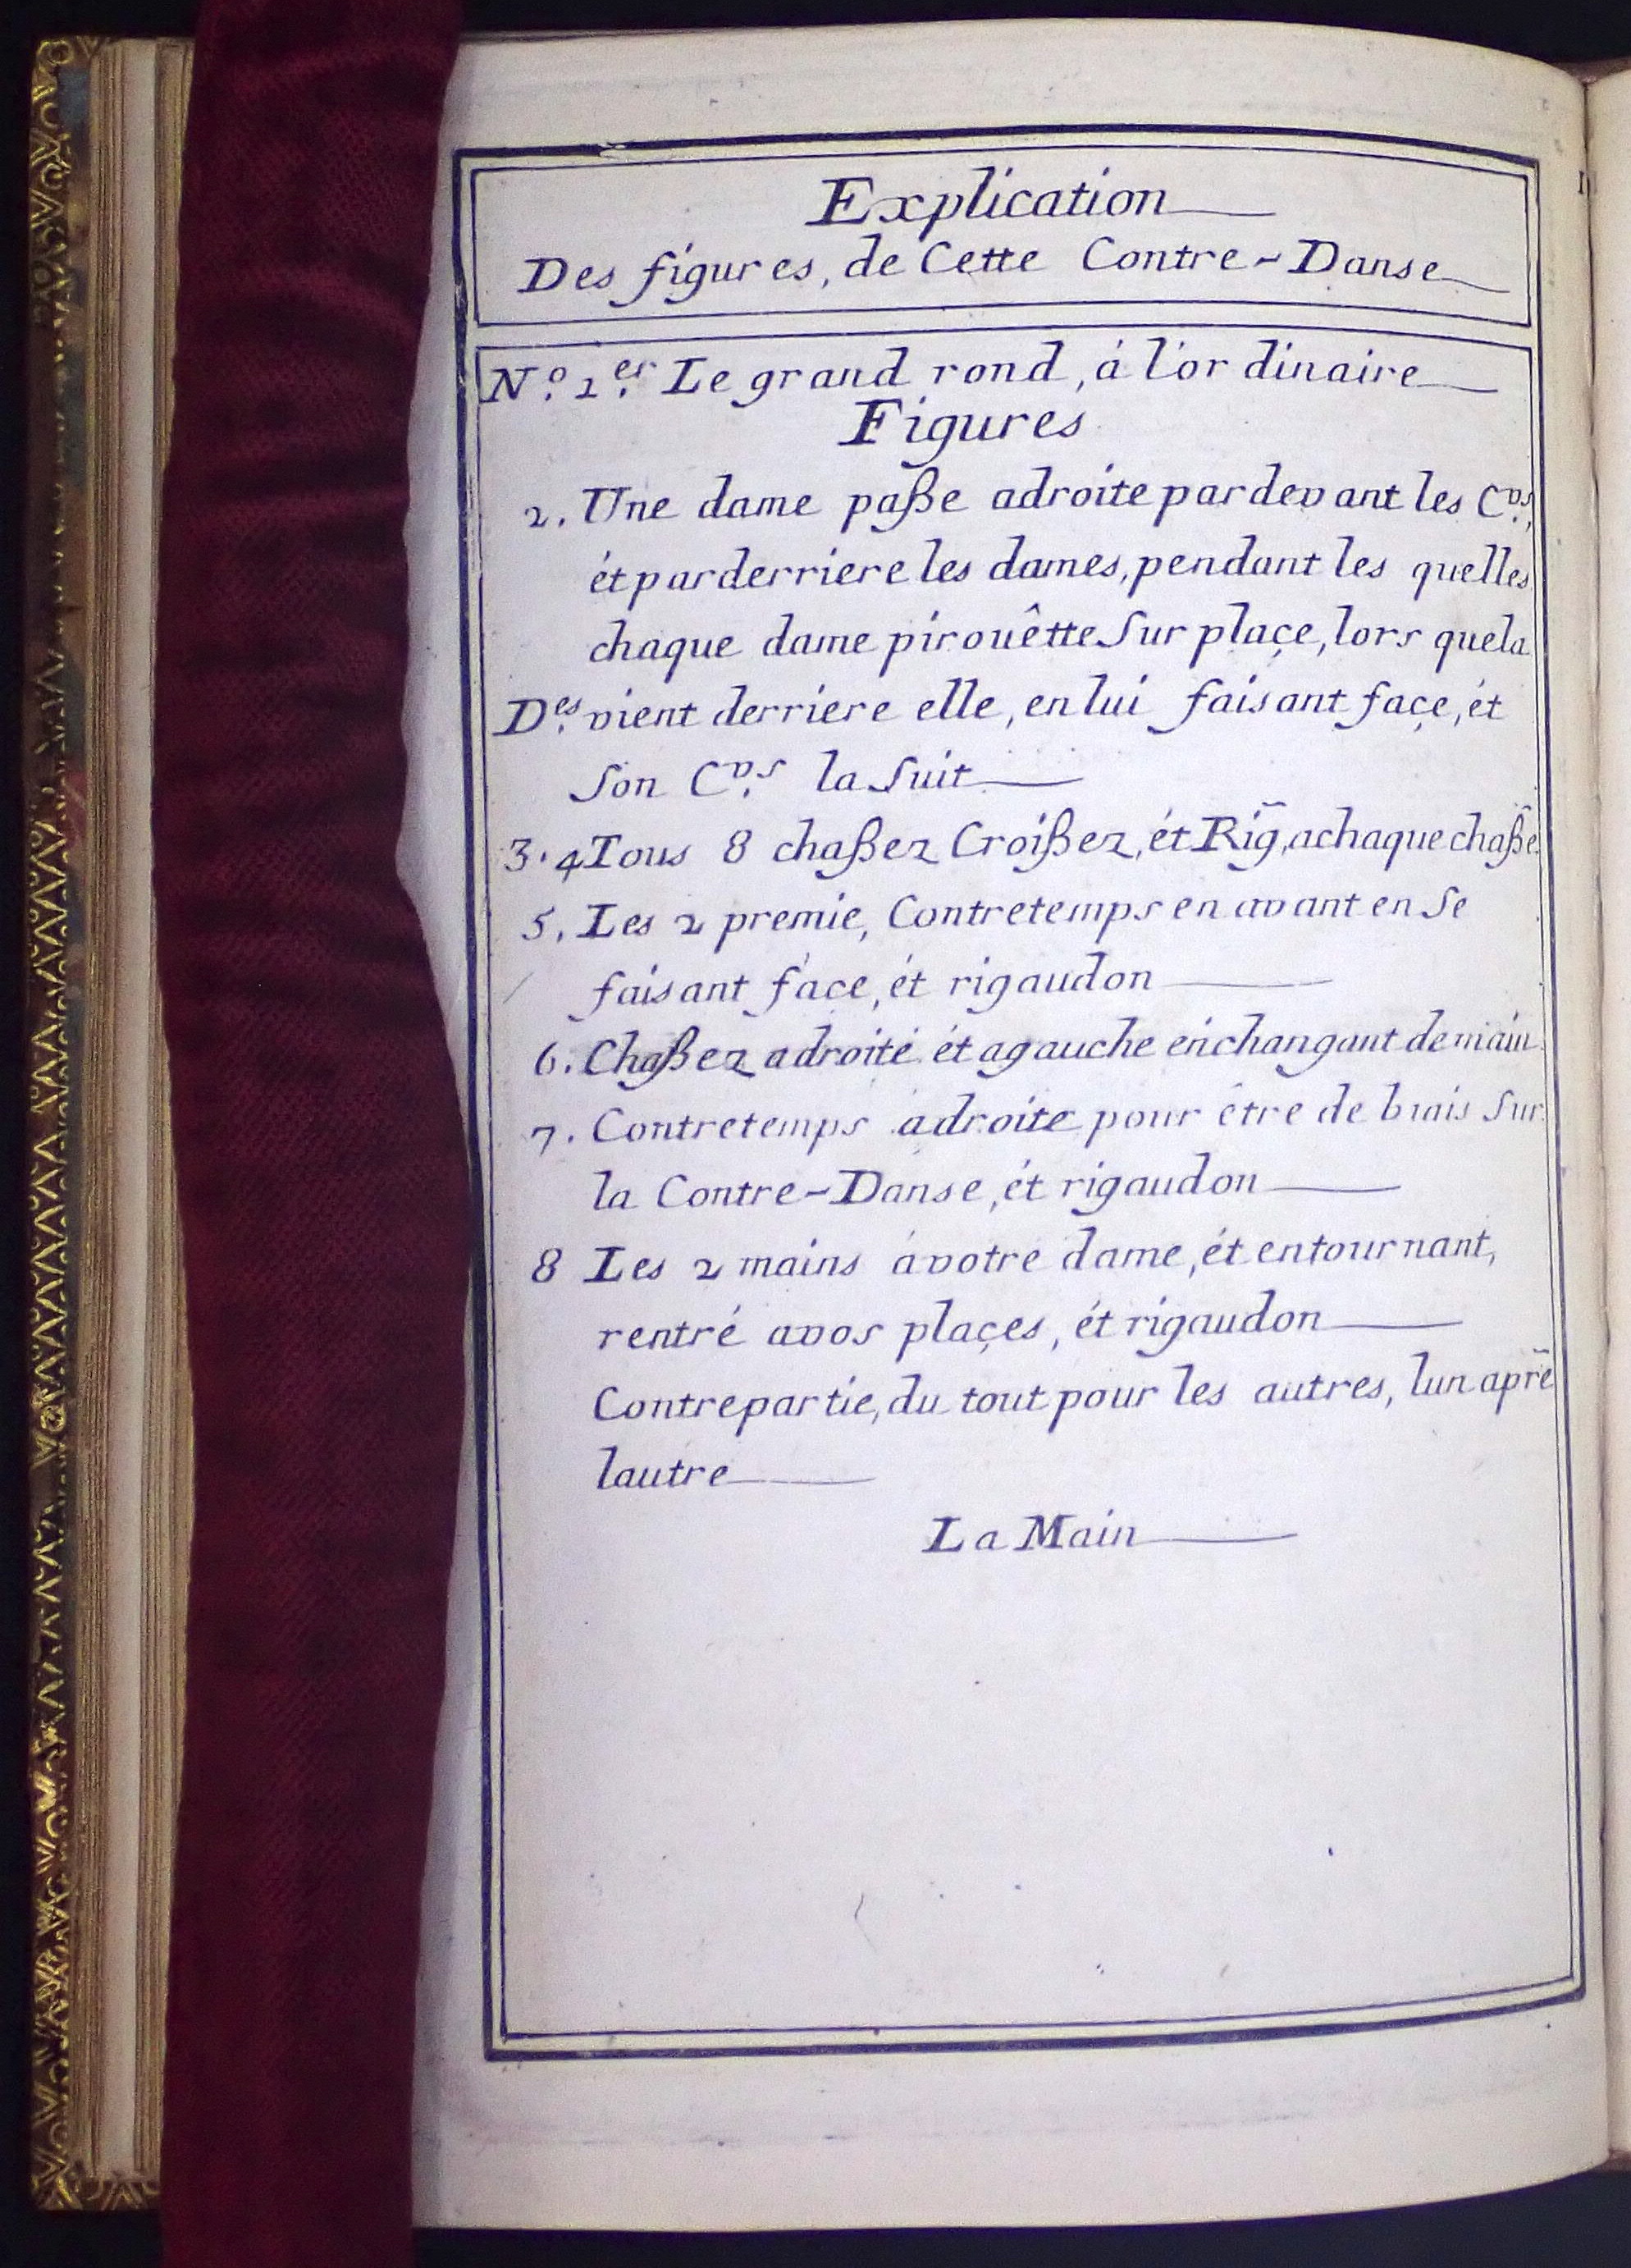 Explication
Des figures, de Cette Contre-Danse
N.º 1.er Le grand rond, à l'or dinaire
Figures
2. Une dame paße adroite pardevant les C.vs,
ét parderriere les dames, pendant les quelles
chaque dame pirouêtte Sur plaçe, lors quela
D.es vient derriere elle, en lui faisant façe, ét
Son C.vs la Suit
3. 4 Tous 8 chaßez Croißez, ét Rig̃, achaque chaßẽ.
5. Les 2 premie, Contretemps en avant en Se
faisant façe, ét rigaudon
6. Chaßez adroité ét agauche enchangant demain
7. Contretemps adroite pour être de biais Sur
la Contre-Danse, ét rigaudon
8 Les 2 mains àvotre dame, ét entournant,
rentré avos plaçes, ét rigaudon
Contrepartie, du tout pour les autres, lun apr̃e
lautre
La Main